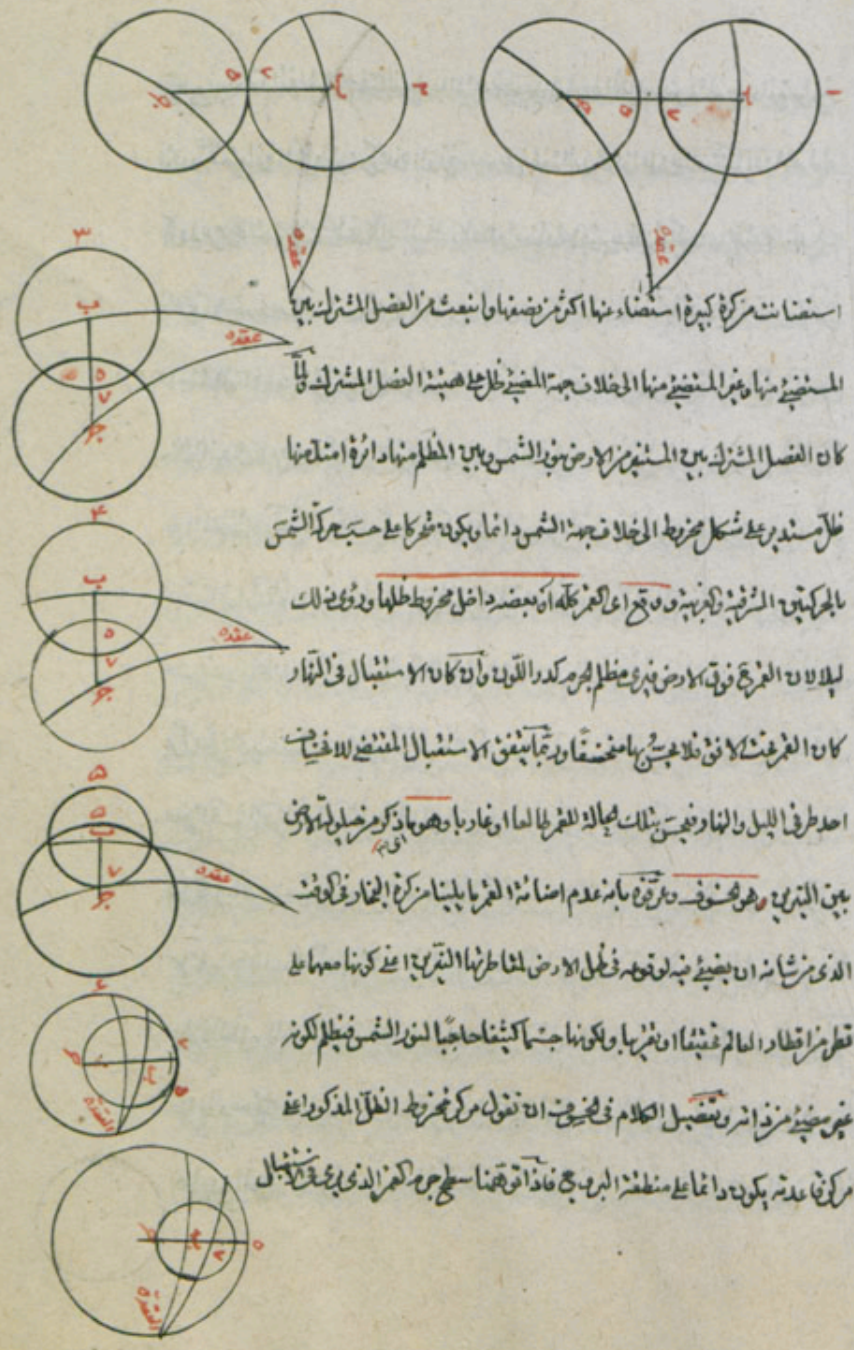 استضائت من كرة كبيرة استضاء عنها اكثر من نصفها وانبعث من الفصل المشترك بين
المستضيئ منها وغير المستضيئ منها الى خلاف جهة المضيئ ظل على هيئة الفصل المشترك ولما
كان الفصل المشترك بين المستنير من الارض بنور الشمس وبين المظلم منها دائرة امتد منها
ظل مستدير على شكل مخروط الى خلاف جهة الشمس دائما ويكون متحركا على حسب حركة الشمس
بالحركتين الشرقية والغربية وقع اى القمر كله او بعضه داخل مخروط ظلها ورؤى ذلك
ليلا لان القمر ح فوق الارض فيرى مظلم الجرم كدر اللون وان كان الاستقبال فى النهار
كان القمر تحت الافق فلا يحس بها منخسفا وربما يتفق الاستقبال المقتضى للانخساف
احد طرفى الليل والنهار فيحس بتلك الحالة للقمر طالعا او غاربا وهو ما ذكر من حيلولة الارض
بين النيرين وهو الخسوف وعرفوه بانه عدم اضائة القمر ما يلينا من كرة البخار فى الوقت
الذى من شانه ان يضيئ فيه لوقوعه فى ظل الارض لمقاطرتها النيرين اعنى كونها معهما على
قطر من اقطار العالم تحقيقا او تقريبا ولكونها جسما كثيفا حاجبا لنور الشمس فيظلم لكونه
غير مضيئ من ذاته وتفصيل الكلام فى الخسوف ان نقول مركز مخروط الظل المذكور اعنى
مركز قاعدته يكون دائما على منطقة البروج فاذا توهمنا سطح جرم القمر الذى يرى فى الاستقبال
١
ب
ح
ه
ج
عقده
٢
ب
ح
ه
ج
عقده
٣
ب
ه
ح
ج
عقده
٤
ب
ه
ح
ج
عقده
٥
ه
ب
ح
ج
عقده
٦
ح
ب
ه
ج
العقدة
ه
ح
ب
ج
العقدة